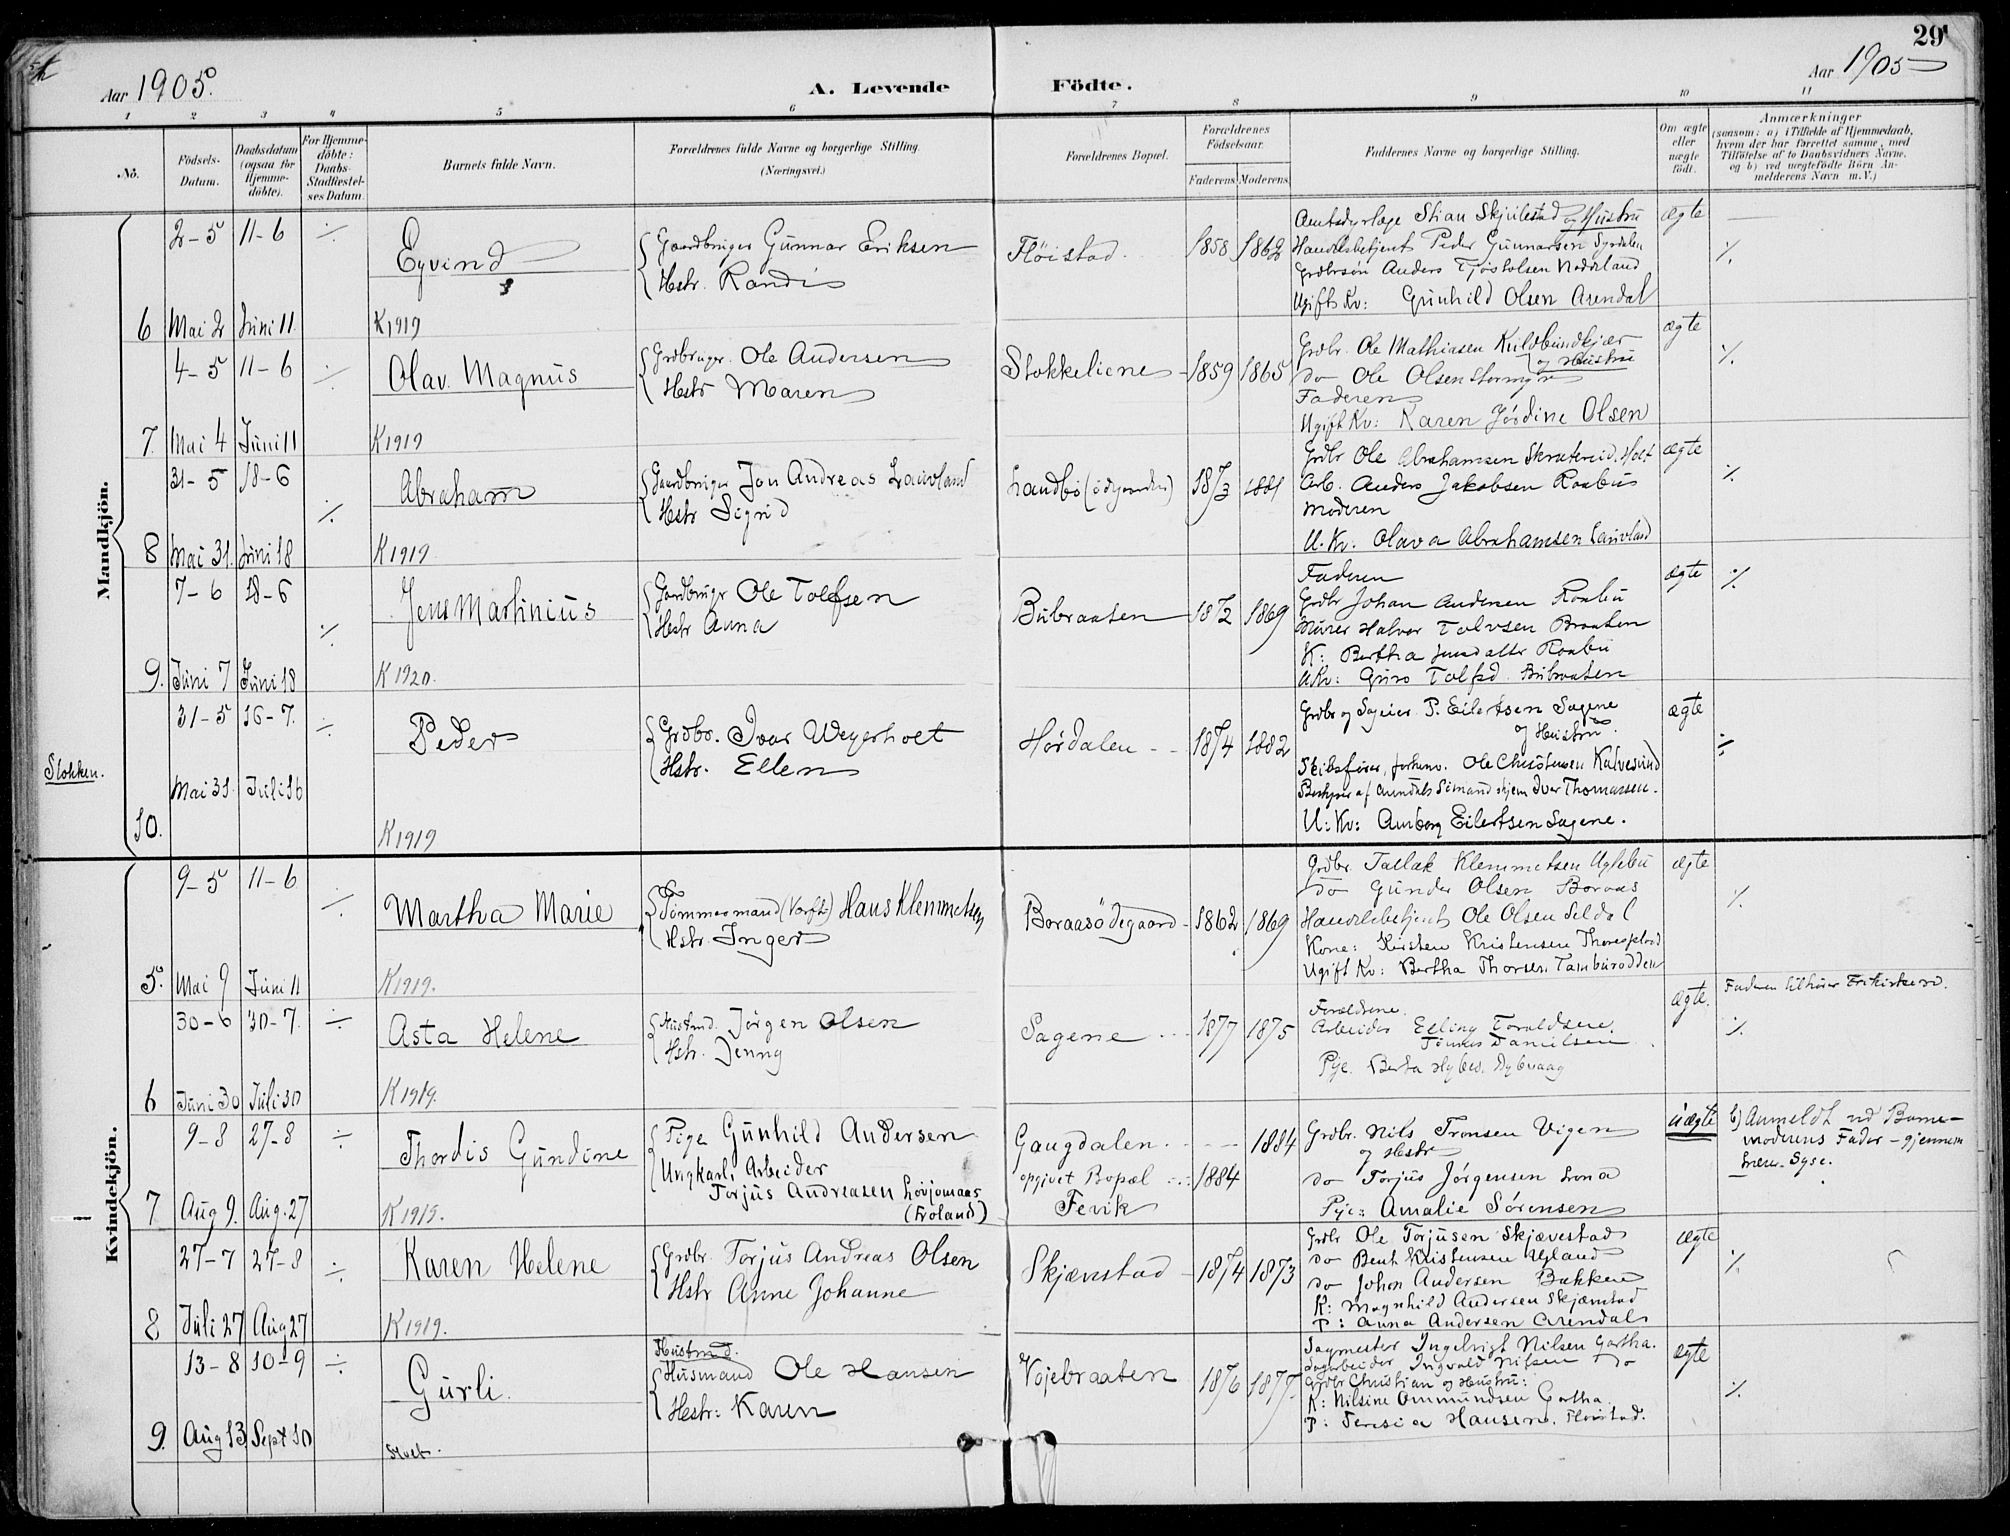 29
Aar 1905.
A. Levende Födte.
Aar 1905
1 2 3 4 5 6 7 8 9 10 11
No.
Födsels-Datum.
Daabsdatum (ogsaa for Hjemme-döbte).
For Hjemme-döbte: Daabs-Stadfæstel-ses Datum.
Barnets fulde Navn.
Forældrenes fulde Navne og borgerlige Stilling. (Næringsvei.)
Forældrenes Bopæl.
Forældrenes Födselsaar.
Faderens. Moderens.
Faddernes Navne og borgerlige Stilling.
Om ægte eller uægte födt.
Anmærkninger
(saasom: a) i Tilfælde af Hjemmedaab, hvem der har forrettet samme, med Tilföielse af to Daabsvidners Navne, og b) ved uægtefödte Börn An-melderens Navn m. V.)
Mandkjön.
6 2-5 11-6 Mai 2 Juni 11 ./.
Eyvind
K 1919
Gaardbruger Gunnar Eriksen
Hstr. Randi
Fløistad 1858 1862
Amtsdyrlæge Stian Skjulestad og Hustru
Handelsbetjent Peder Gunnarsen Syrdalen
Grdbrsøn Anders Tjøstolsen Nedeland
Ugift Kv: Gunhild Olsen Arendal
ægte ./.
7. 4-5 11-6 Mai 4 Juni 11 ./.
Olav Magnus
K 1919
Grdbruger Ole Andersen
Hstr Maren
Stokkeliene 1859 1865
Grdbr. Ole Mathiasen Kuldbundkjær og Hustru
do Ole Olsen Stormyr
Faderen
Ugift Kv: Karen Jørdine Olsen
ægte ./.
8 31-5 18-6 Mai 31. Juni 18 ./.
Abraham
K 1919
Gaardbruger Jon Andreas Lauvland
Hstr Sigrid
Landbø 1873 1881
Grdbr Ole Abrahamsen Skratereid, Holt
Arb. Anders Jakobsen Raabu
Moderen
U. Kv. Olava Abrahamsen Lauvland
ægte ./.
9. 7-6 18-6 Juni 7 Juni 18 ./.
Jens Martinius
K 1920.
Gardbrugr Ole Tolfsen
Hstr Anna
Bubraaten 1872 1869
Faderen
Grdbr Johan Andersen Raabu
Murer Halvor Tolvsen Braaten
K: Bertha Raabu
UKv: Guro Tolfsd. Bubraaten
ægte ./.
Stokken.
10. 31-5 16-7. Mai 31. Juli 16 ./.
Peder
K 1919
Grdbr. Ivar Weyerholt
Hstr. Ellen
Hørdalen 1874 1882
Grdbr og Sageier P. Eilertsen Sagene og Hustru
Skibsfører, forhenv. Ole Christensen Kalvesund
Bestyrer af Arendals Sømandshjem Ivar Thomassen.
U: Kv: Amborg Eilertsen Sagene.
ægte ./.
Kvindekjön.
5. 9-5 11-6 Mai 9 Juni 11 ./.
Martha Marie
K 1919.
Tømmermand (Værft) Hans Klemmetsen
Hstr. Inger
Boraasødegaard 1862 1869
Grdbr. Tallak Klemmetsen Uglebu
do Gunder Olsen Boraas
Handelsbetjent Ole Olsen Seldal
Kone: Kirsten Kristensen
Ugift Kv: Bertha Thorsen Tamburodden
ægte ./.
6 30-6 30-7. Juni 30 Juli 30 ./.
Asta Helene
K 1919.
Husmd. Jørgen Olsen
Hstr. Jenny
Sagene 1877 1875
Forældrene.
Arbeider Elling Toraldsen.
Tønnes Danielsen
Pige Berta Dybvaag
ægte.
Faderen tilhører Frikirken.
./.
7 9-8 27-8 Aug 9. Aug. 27 ./.
Thordis Gundine
K 1919.
Pige Gunhild Andersen
Ungkarl, Arbeider
Torjus Andreasen Løvjomaas (Froland)
Gaugdalen 1884
opgivet Bopæl 1884
Fevik
Grdbr. Nils Tronsen Vigen og Hstr
do Torjus Jørgensen
Pige: Amalie Sørensen
uægte
b) Anmeldt ved Barne-
moderens Fader - gjennem
8 27-7 27-8 Juli 27 Aug 27 ./.
Karen Helene
K 1919.
Grdbr. Torjus Andreas Olsen
Hstr Anne Johanne
Skjævestad 1874 1873
Grdbr Ole Torjusen Skjævestad
do Bent Kristensen Ugland
do Johan Andersen Bakken
K: Magnhild Andersen Skjævestad
P: Anna Andersen Arendal
ægte ./.
9. 13-8 10-9 Aug 13 Sept 10 ./.
Gurli.
Husmd.
Husmand Ole Hansen
Hstr: Karen
Vøjebraaten 1876 1877.
Sagmester Ingebrigt Nilsen Gartha.
Sagarbeider Ingvald Nilsen do
Grdbr Christian og Hustru:
K: Nilsine Ommundsen Gartha.
P: Teresia Hansen. Fløistad.
ægte ./.